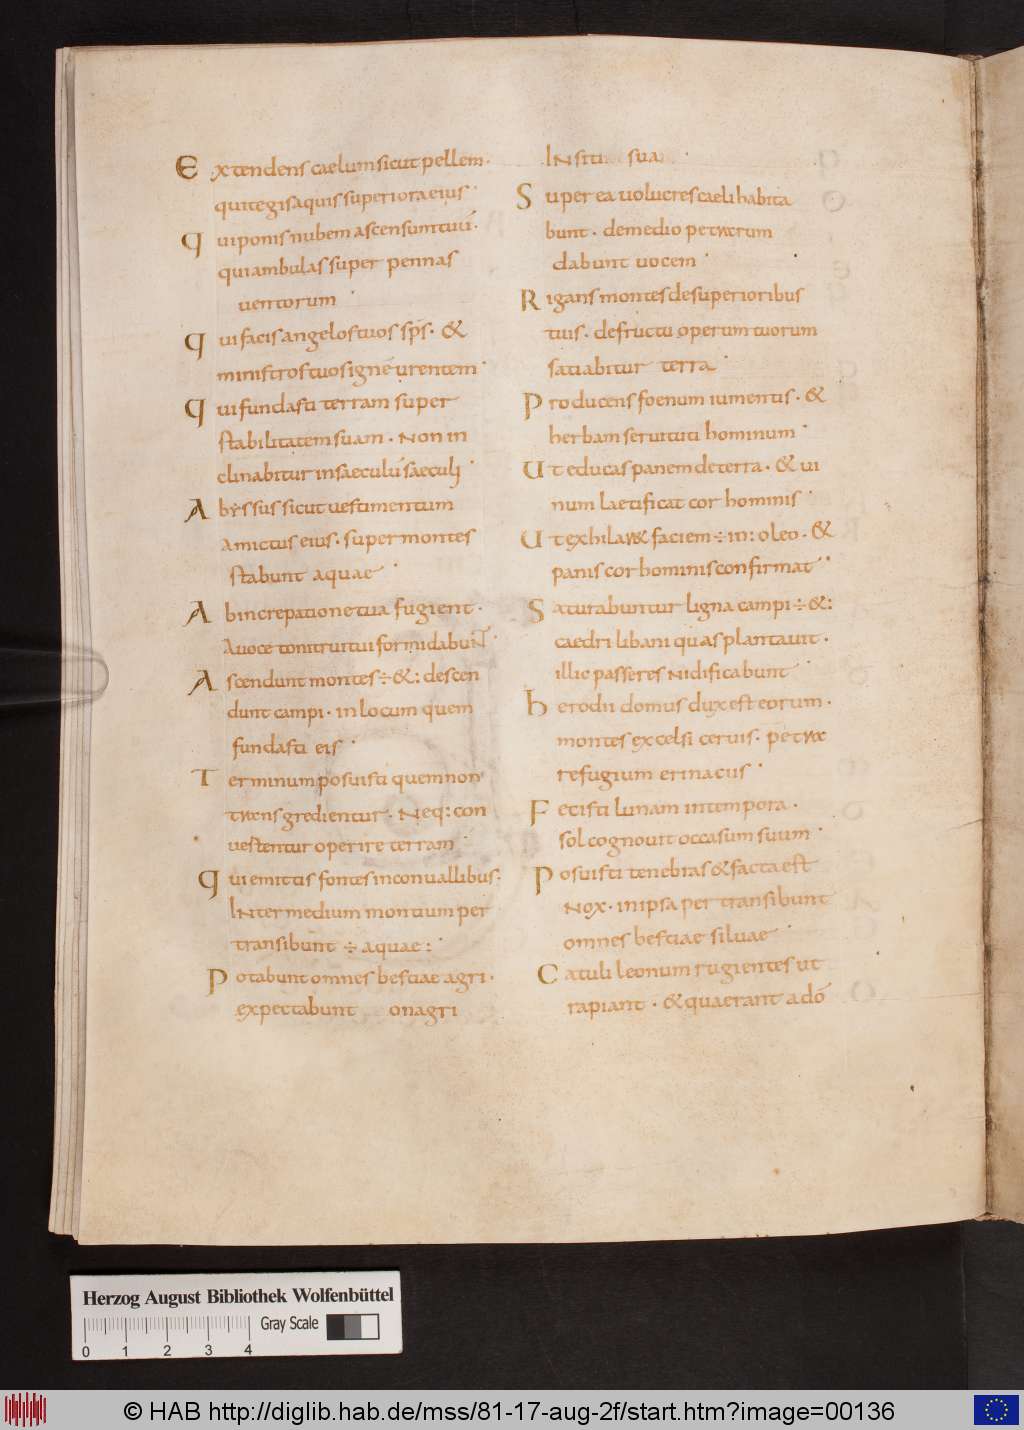 Extendens caelum sicut pellem·
qui tegis aquis superiora eius·
qui ponis nubem ascensum tuū·
qui ambulas super pennas
uentorum·
qui facis angelos tuos sp̄s· &
ministros tuos ignē urentem·
qui fundasti terram super
stabilitatem suam· Non in
clinabitur in saeculū saeculi·
Abyssus sicut uestimentum
amictus eius· super montes
stabunt aquae·
Ab increpatione tua fugient·
A uoce tonitrui tui formidabunt
Ascendunt montes ÷ &: descen
dunt campi· in locum quem
fundasti eis·
Terminum posuisti quem non
transgredientur· Neq: con
uestentur operire terram·
qui emittis fontes in conuallibus:
INter medium montium per
transibunt ÷ aquae:·
Potabunt omnes bestiae agri·
expectabunt onagri
IN siti sua·
Super ea uolucres caeli habita
bunt· de medio petrarum
dabunt uocem·
Rigans montes de superioribus
tuis· de fructu operum tuorum
satiabitur terra·
Producens foenum iumentis· &
herbam seruituti hominum·
Ut educas panem de terra· & ui
num laetificat cor hominis·
Ut exhilar& faciem ÷ in: oleo· &
panis cor hominis confirmat·
Saturabuntur ligna campi ÷ &:
caedri libani quas plantauit·
illic passeres Nidificabunt·
herodii domus dux est eorum·
montes excelsi ceruis· petra
refugium erinaciis·
Fecisti lunam in tempora·
sol cognouit occasum suum·
Posuisti tenebras & facta est
Nox· in ipsa pertransibunt
omnes bestiae siluae·
Catuli leonum rugientes ut
rapiant· & quaerant a dō
Herzog August Bibliothek Wolfenbüttel
Gray Scale
0 1 2 3 4
© HAB http://diglib.hab.de/mss/81-17-aug-2f/start.htm?image=00136